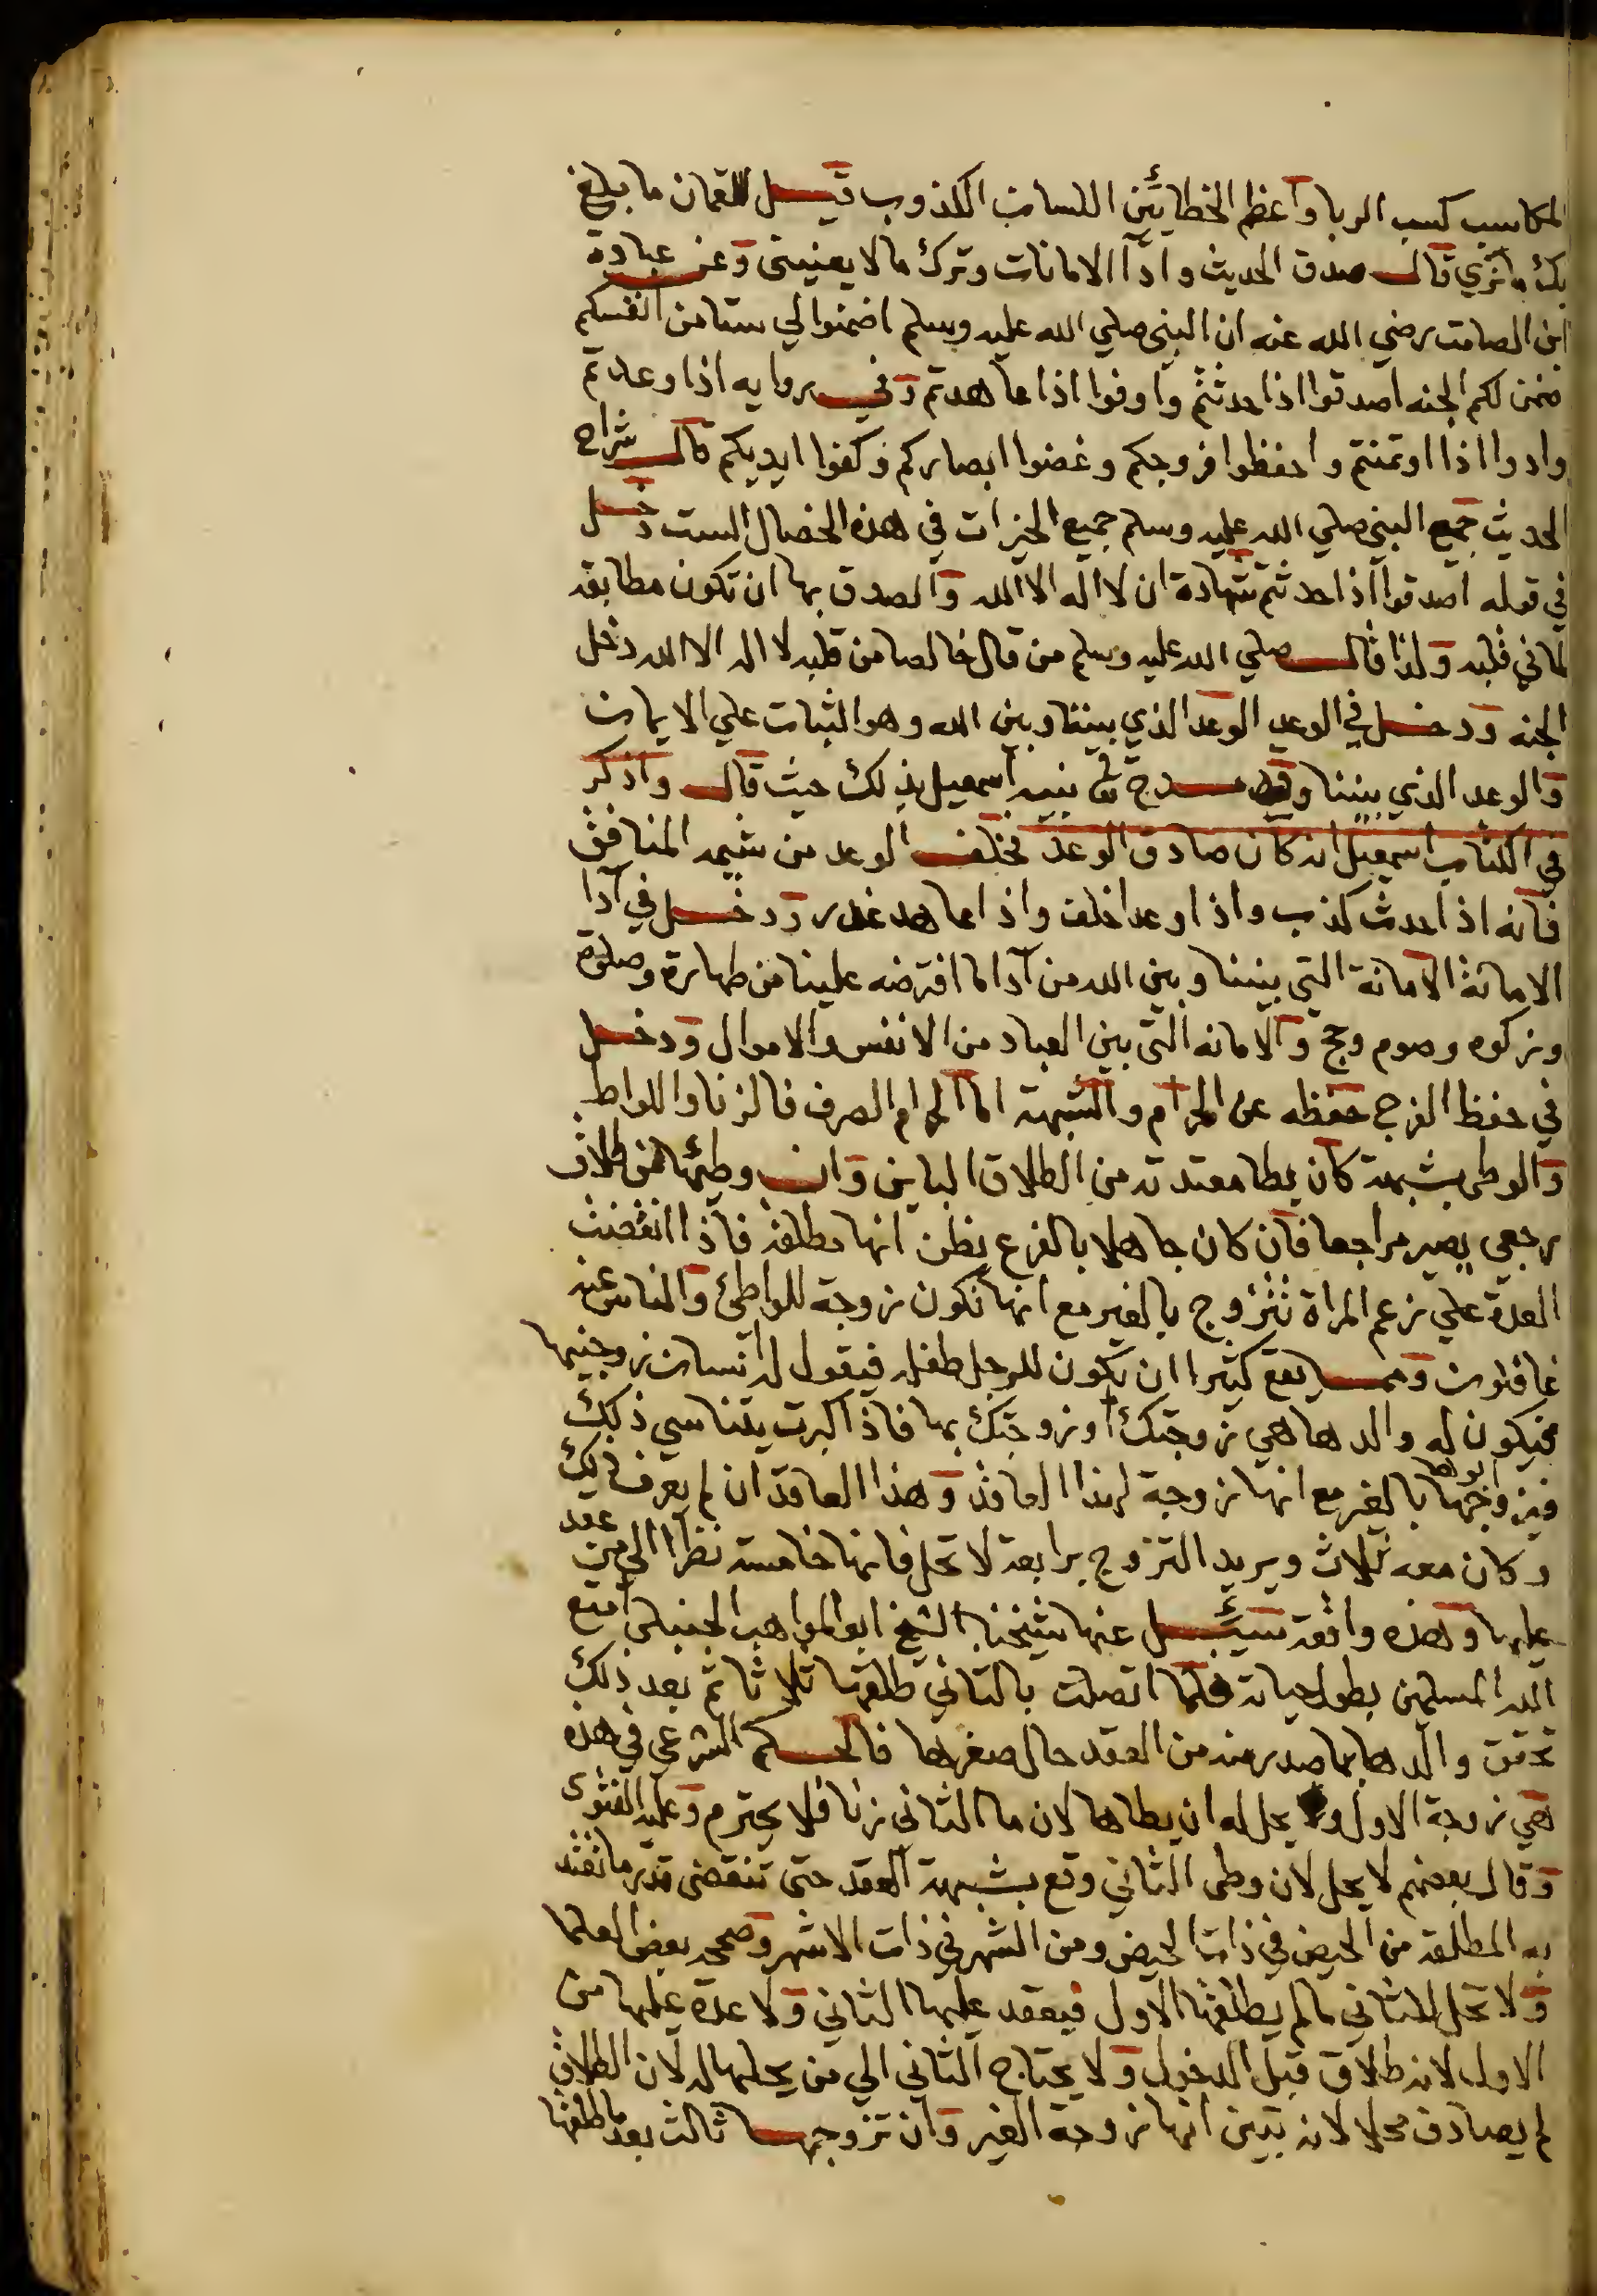 المكاسب كسب الربا واعظم الخطائين اللسان الكذوب قيل للقمان ما بلغ
بك ما نرى قال صدق الحديث وادآ الامانات وترك ما لا يعنينى وعن عبادة
ابن الصامت رضي الله عنه ان النبي صلي الله عليه وسلم اضمنوا لي ستا من انفسكم
اضمن لكم الجنه اصدقوا اذا حدثتم واوفوا اذا عاهدتم وفي روايه اذا وعدتم
وادوا اذا اوتمنتم واحفظوا فروجكم وغضوا ابصاركم وكفوا ايديكم قال شراح
الحديث جمع النبي صلي الله عليه وسلم جميع الخيرات في هذه الخصال الست دخل
في قوله اصدقوا اذا حدثتم شهادة ان لا اله الا الله والصدق بها ان تكون مطابقه
لما في قلبه ولذا قال صلي الله عليه وسلم من قال خالصا من قلبه لا اله الا الله دخل
الجنه ودخل في الوعد الوعد الذي بيننا وبين الله وهو الثبات علي الايمان
والوعد الذي بيننا وقد مدح الله نبيه اسمعيل بذلك حيث قال واذكر
في الكتاب اسمعيل انه كان صادق الوعد فخلف الوعد من شيمه المنافق
فانه اذا حدث كذب واذا وعد اخلف واذا عاهد غدر ودخل في آدا
الامانة الامانة التي بيننا وبين الله من آدا ما افترضه علينا من طهارة وصلوة
وزكوه وصوم وحج والامانه التى بين العباد من الانفس والاموال ودخل
في حفظ الفرج حفظه عن الحرام والشبهة اما الحرام الصرف فالزنا واللواط
والوطى بشبهة كان يطا معتدته من الطلاق الباين وان وطئها من طلاق
رجعي يصير مراجعا فان كان جاهلا بالفرع يظن انها مطلقة فاذا انقضت
العدة علي زعم المراة تتزوج بالغير مع انها تكون زوجة للواطئ والناس عنه
غافلون ومما يقع كثيرا ان يكون للرجل طفله فيقول له انسان زوجنيها
فيكون له والدها هي زوجتك او زوجتك بها فاذا كبرت يتناسي ذلك
فيزوجها ابوها بالغير مع انها زوجة لهذا العاقد وهذا العاقد ان لم يعرف ذلك
وكان معه ثلاث ويريد التزوج برابعة لا تحل فانها خامسة نظرا الي من عقد
عليها وهذه واقعة سئل عنها شيخنا الشيخ ابو المواهب الحنبلي امتع
الله المسلمين بطول حياته فلما اتصلت بالثاني طلقها ثلاثا ثم بعد ذلك
تحقق والدها بما صدر منه من العقد حال صغرها فالحكم الشرعي في هذه
هي زوجة الاول ولا يحل له ان يطاها لان ما الثاني زنا فلا يحترم وعليه الفتوى
وقال بعضهم لا يحل لان وطى الثاني وقع بشبهة العقد حتى تنقضى قدر ما تعتد
به المطلقة من الحيض في ذات الحيض ومن الشهر في ذات الاشهر وصححه بعض العلما
ولا تحل للثاني ما لم يطلقها الاول فيعقد عليها الثاني ولا عدة عليها من
الاول لانه طلاق قبل الدخول ولا يحتاج الثاني الي من يحلها له لان الطلاق
لم يصادف محلا لانه تبين انها زوجة الغير وان تزوجها ثالث بعد ما طلقها